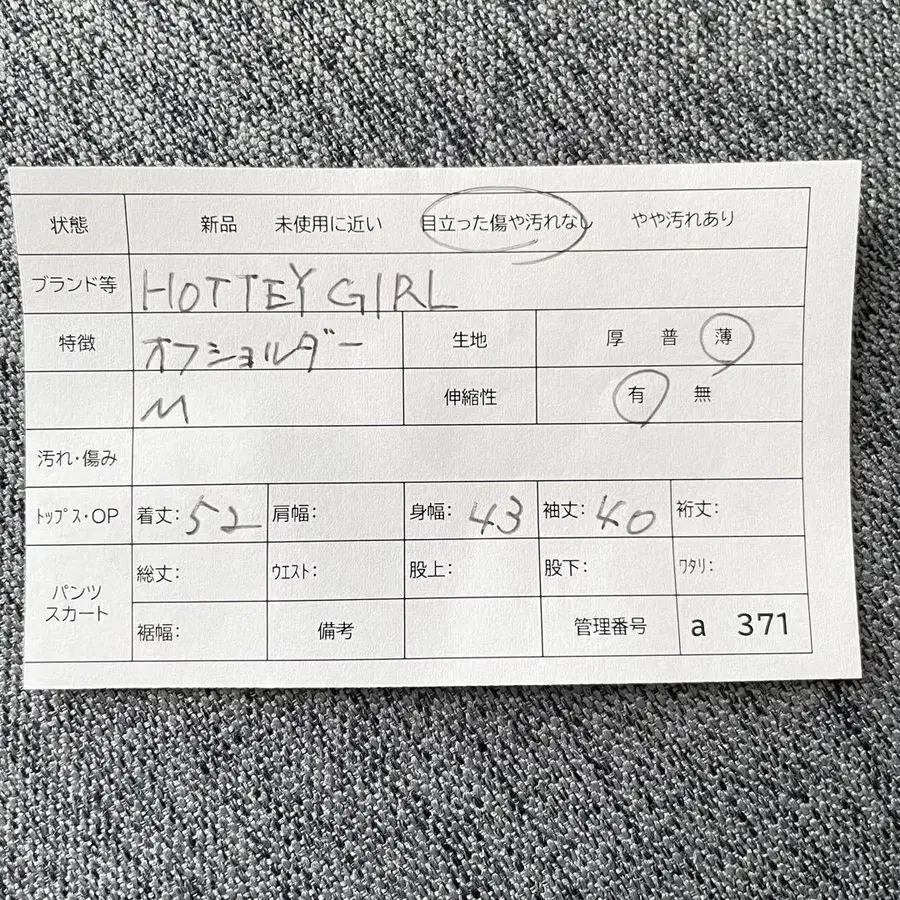 状態 新品 未使用に近い 目立った傷や汚れなし やや汚れあり
ブランド等 HOTTEY GIRL
特徴 オフショルダー 生地 厚 普 薄
M 伸縮性 有 無
汚れ・傷み
ﾄｯﾌﾟｽ・OP 着丈: 52 肩幅: 身幅: 43 袖丈: 40 裄丈:
パンツ
スカート
総丈: ｳｴｽﾄ: 股上: 股下: ﾜﾀﾘ:
裾幅: 備考 管理番号 a 371